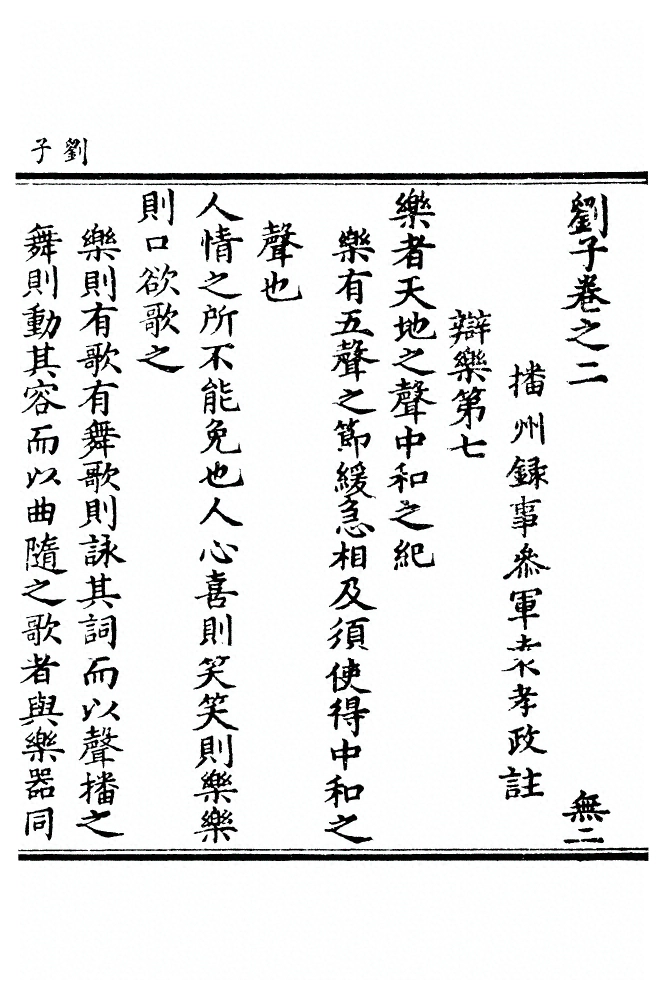 劉子
劉子卷之二
無二
播州錄事叅軍袁孝政註
辯樂第七
樂者天地之聲中和之紀
樂有五聲之節緩急相及須使得中和之
聲也
人情之所不能免也人心喜則笑笑則樂樂
則口欲歌之
樂則有歌有舞歌則詠其詞而以聲播之
舞則動其容而以曲隨之歌者與樂器同